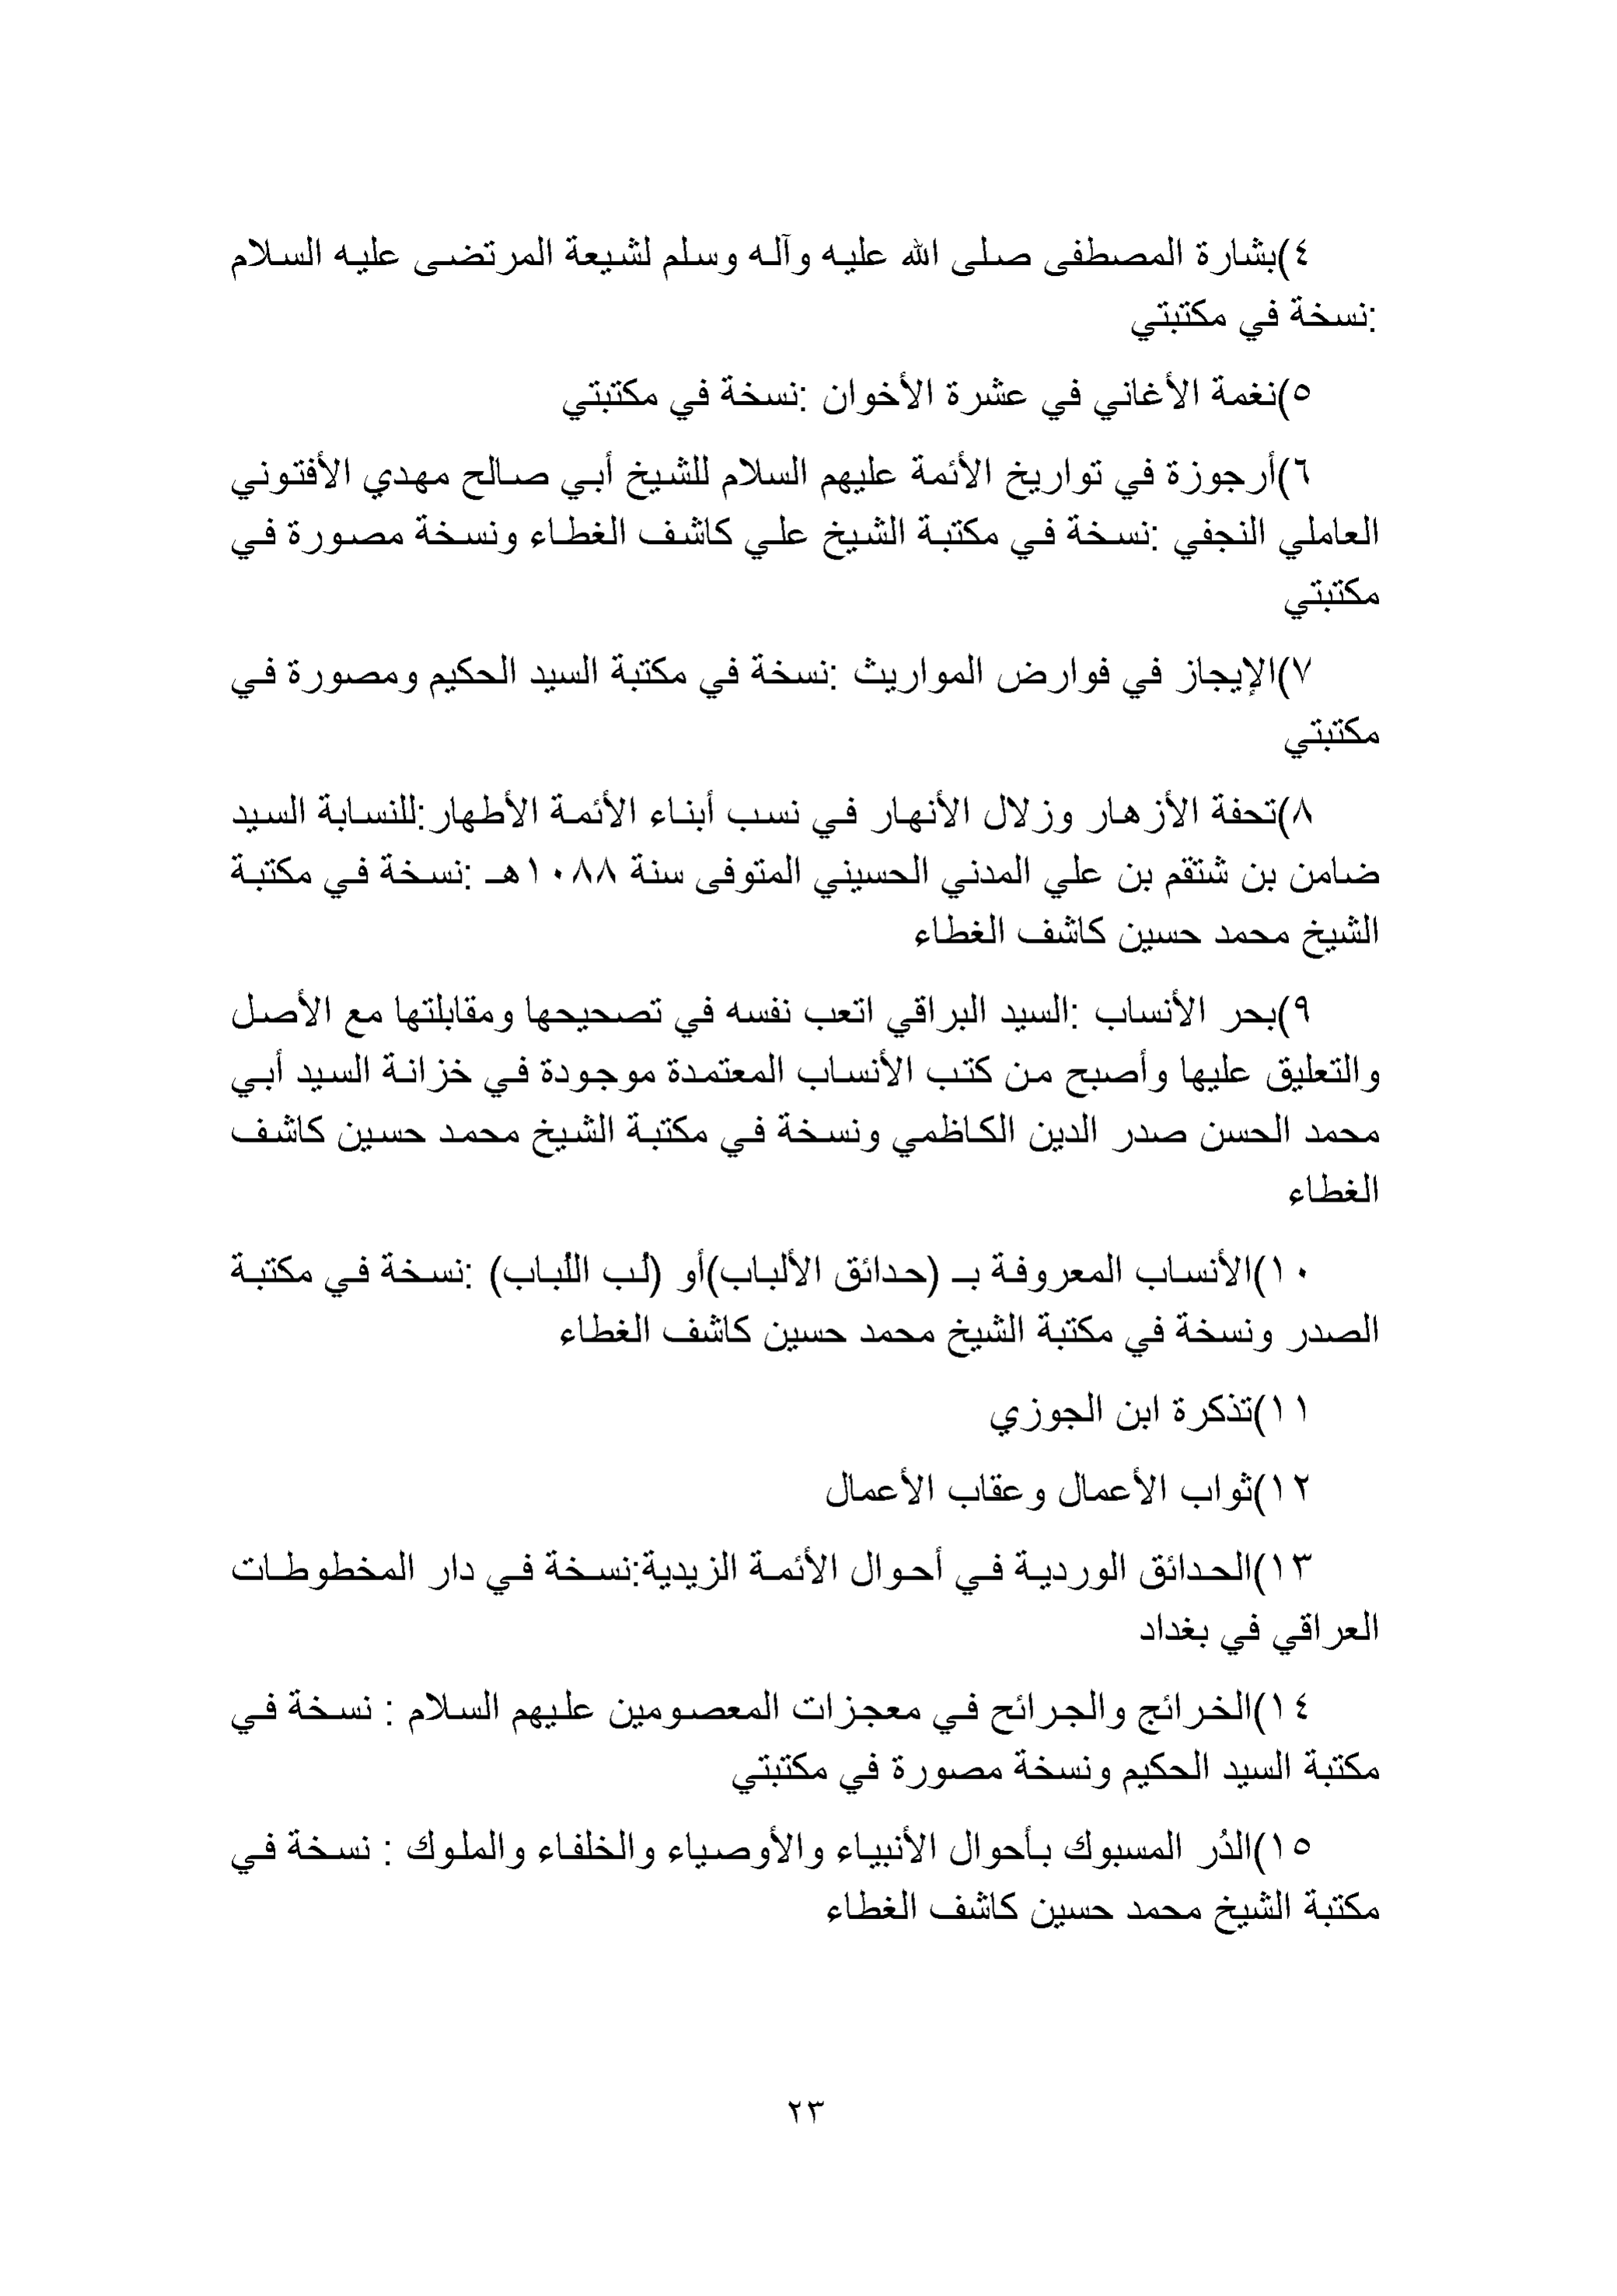 ٤)بشارة المصطفى صلى الله عليه وآله وسلم لشيعة المرتضى عليه السلام
:نسخة في مكتبتي
٥)نغمة الأغاني في عشرة الأخوان :نسخة في مكتبتي
٦)أرجوزة في تواريخ الأئمة عليهم السلام للشيخ أبي صالح مهدي الأفتوني
العاملي النجفي :نسخة في مكتبة الشيخ علي كاشف الغطاء ونسخة مصورة في
مكتبتي
٧)الإيجاز في فوارض المواريث :نسخة في مكتبة السيد الحكيم ومصورة في
مكتبتي
٨)تحفة الأزهار وزلال الأنهار في نسب أبناء الأئمة الأطهار:للنسابة السيد
ضامن بن شتقم بن علي المدني الحسيني المتوفى سنة ١٠٨٨هـ :نسخة في مكتبة
الشيخ محمد حسين كاشف الغطاء
٩)بحر الأنساب :السيد البراقي اتعب نفسه في تصحيحها ومقابلتها مع الأصل
والتعليق عليها وأصبح من كتب الأنساب المعتمدة موجودة في خزانة السيد أبي
محمد الحسن صدر الدين الكاظمي ونسخة في مكتبة الشيخ محمد حسين كاشف
الغطاء
١٠)الأنساب المعروفة بـ (حدائق الألباب)أو (لُب اللُباب) :نسخة في مكتبة
الصدر ونسخة في مكتبة الشيخ محمد حسين كاشف الغطاء
١١)تذكرة ابن الجوزي
١٢)ثواب الأعمال وعقاب الأعمال
١٣)الحدائق الوردية في أحوال الأئمة الزيدية:نسخة في دار المخطوطات
العراقي في بغداد
١٤)الخرائج والجرائح في معجزات المعصومين عليهم السلام : نسخة في
مكتبة السيد الحكيم ونسخة مصورة في مكتبتي
١٥)الدُر المسبوك بأحوال الأنبياء والأوصياء والخلفاء والملوك : نسخة في
مكتبة الشيخ محمد حسين كاشف الغطاء
٢٣